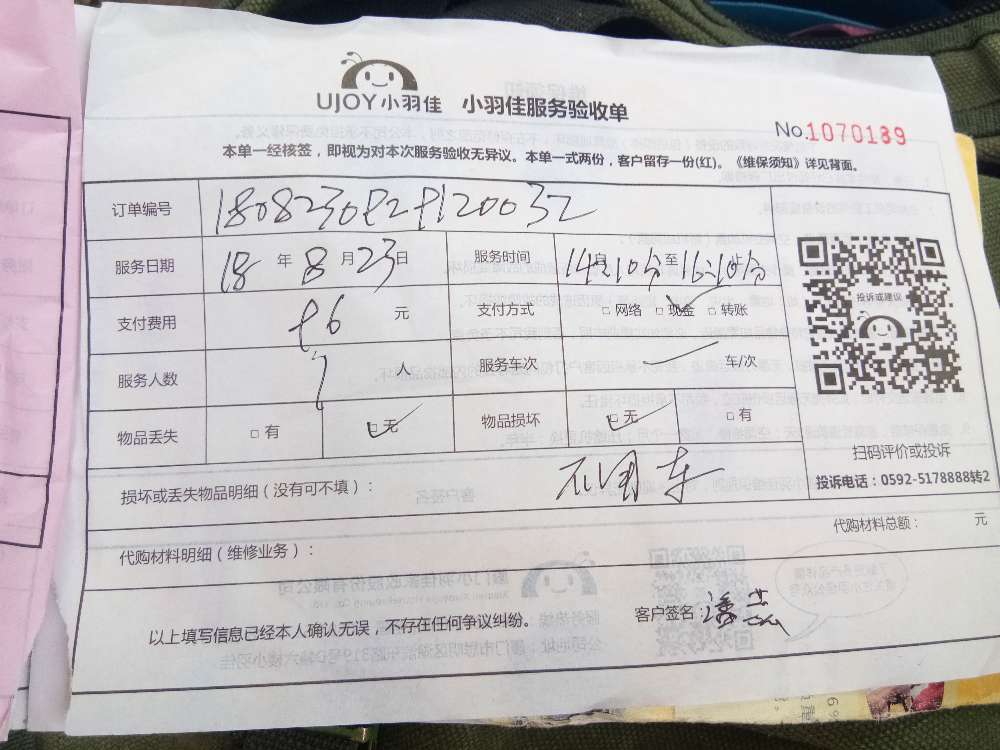 UJOY小羽佳 小羽佳服务验收单
No.1070139
本单一经核签，即视为对本次服务验收无异议。本单一式两份，客户留存一份(红)。《维保须知》详见背面。
订单编号
服务日期 18 年 8 月 23 日 服务时间 14 10分 至 16:10分
支付费用 元 支付方式 □ 网络 □ 现金 □ 转账
服务人数 1 人 服务车次 车/次
物品丢失 □ 有 □ 无 物品损坏 □ 无 □ 有
投诉或建议
扫码评价或投诉
投诉电话：0592-5178888转2
损坏或丢失物品明细（没有可不填）：
代购材料明细（维修业务）： 代购材料总额： 元
以上填写信息已经本人确认无误，不存在任何争议纠纷。 客户签名：潘蕊